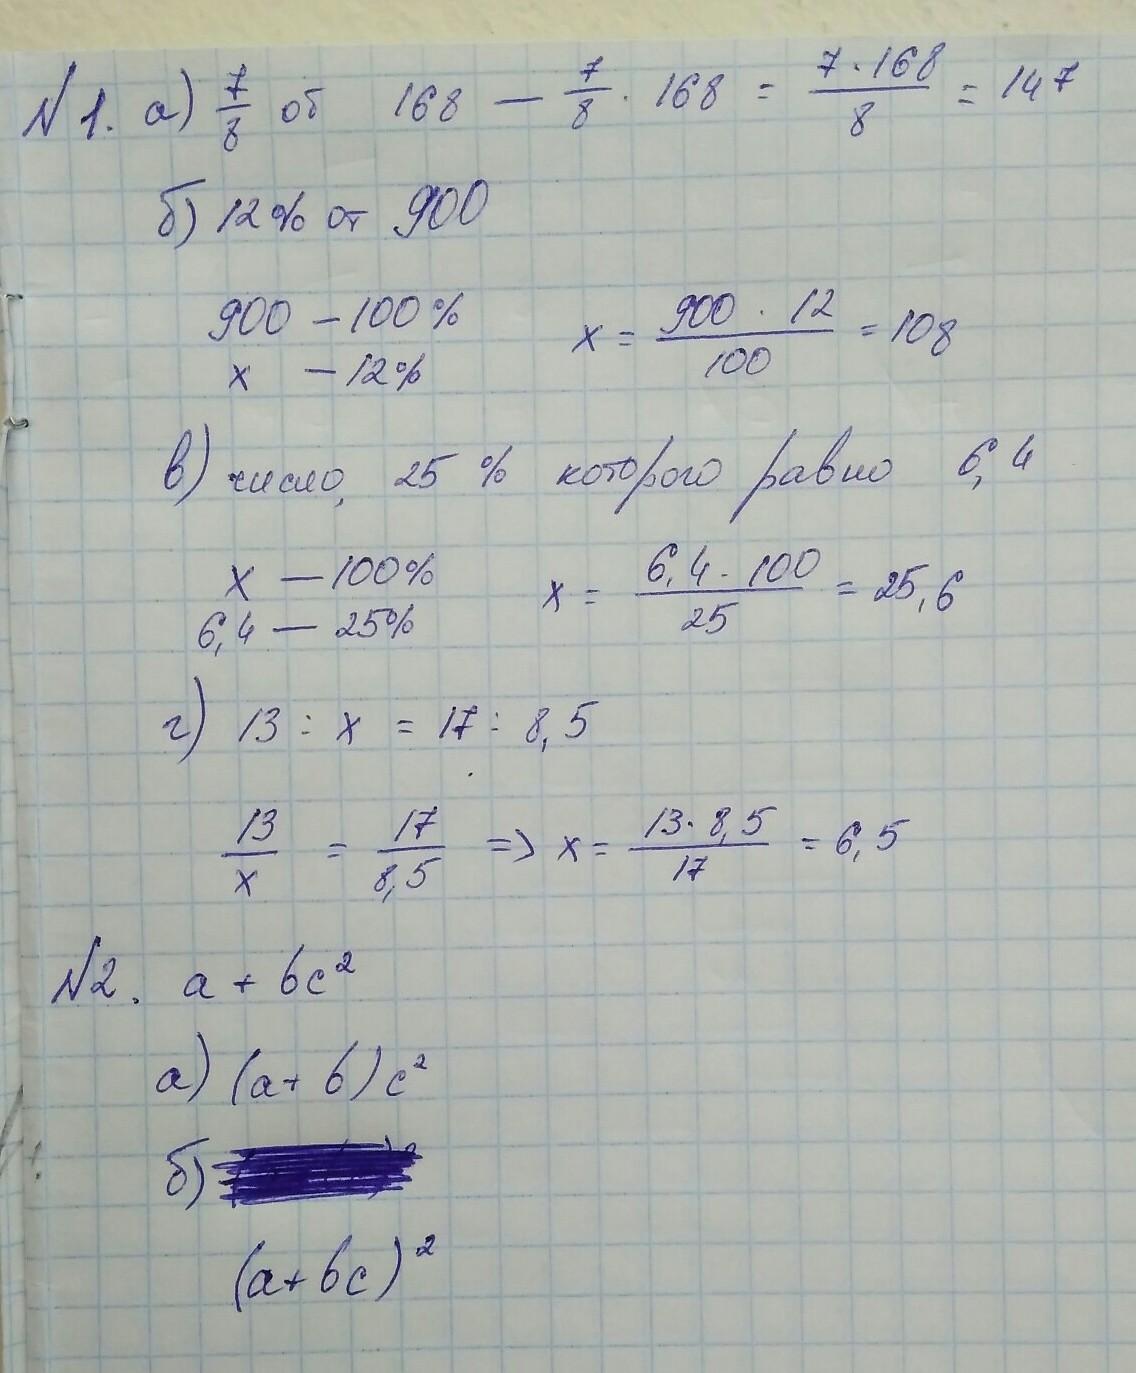 №1. а) 7/8 об 168 — 7/8 · 168 = 7·168/8 = 147
б) 12% от 900
900 – 100% x = 900 · 12/100 = 108
x – 12%
в) число, 25 % которого равно 6,4
x — 100% x = 6,4 · 100/25 = 25,6
6,4 — 25%
г) 13 : x = 17 : 8,5
13/x = 17/8,5 => x = 13·8,5/17 = 6,5
№2. a + bc²
а) (a+b)c²
б)
(a+bc)²